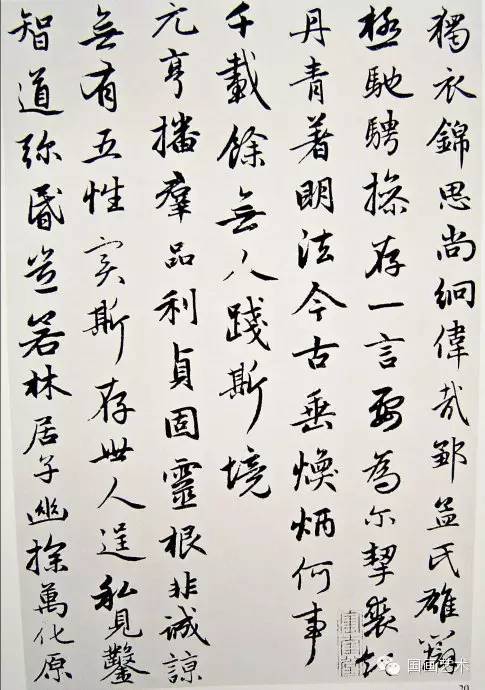 獨衣錦思尚絅偉哉鄒孟氏雄辯
極馳騁操存一言要為尔挈裘領
丹青著明法今古垂煥炳何事
千載餘無人踐斯境
元亨播羣品利貞固靈根非誠諒
無有五性实斯存世人逞私見鑿
智道弥昬豈若林居子幽探萬化原
国画艺术